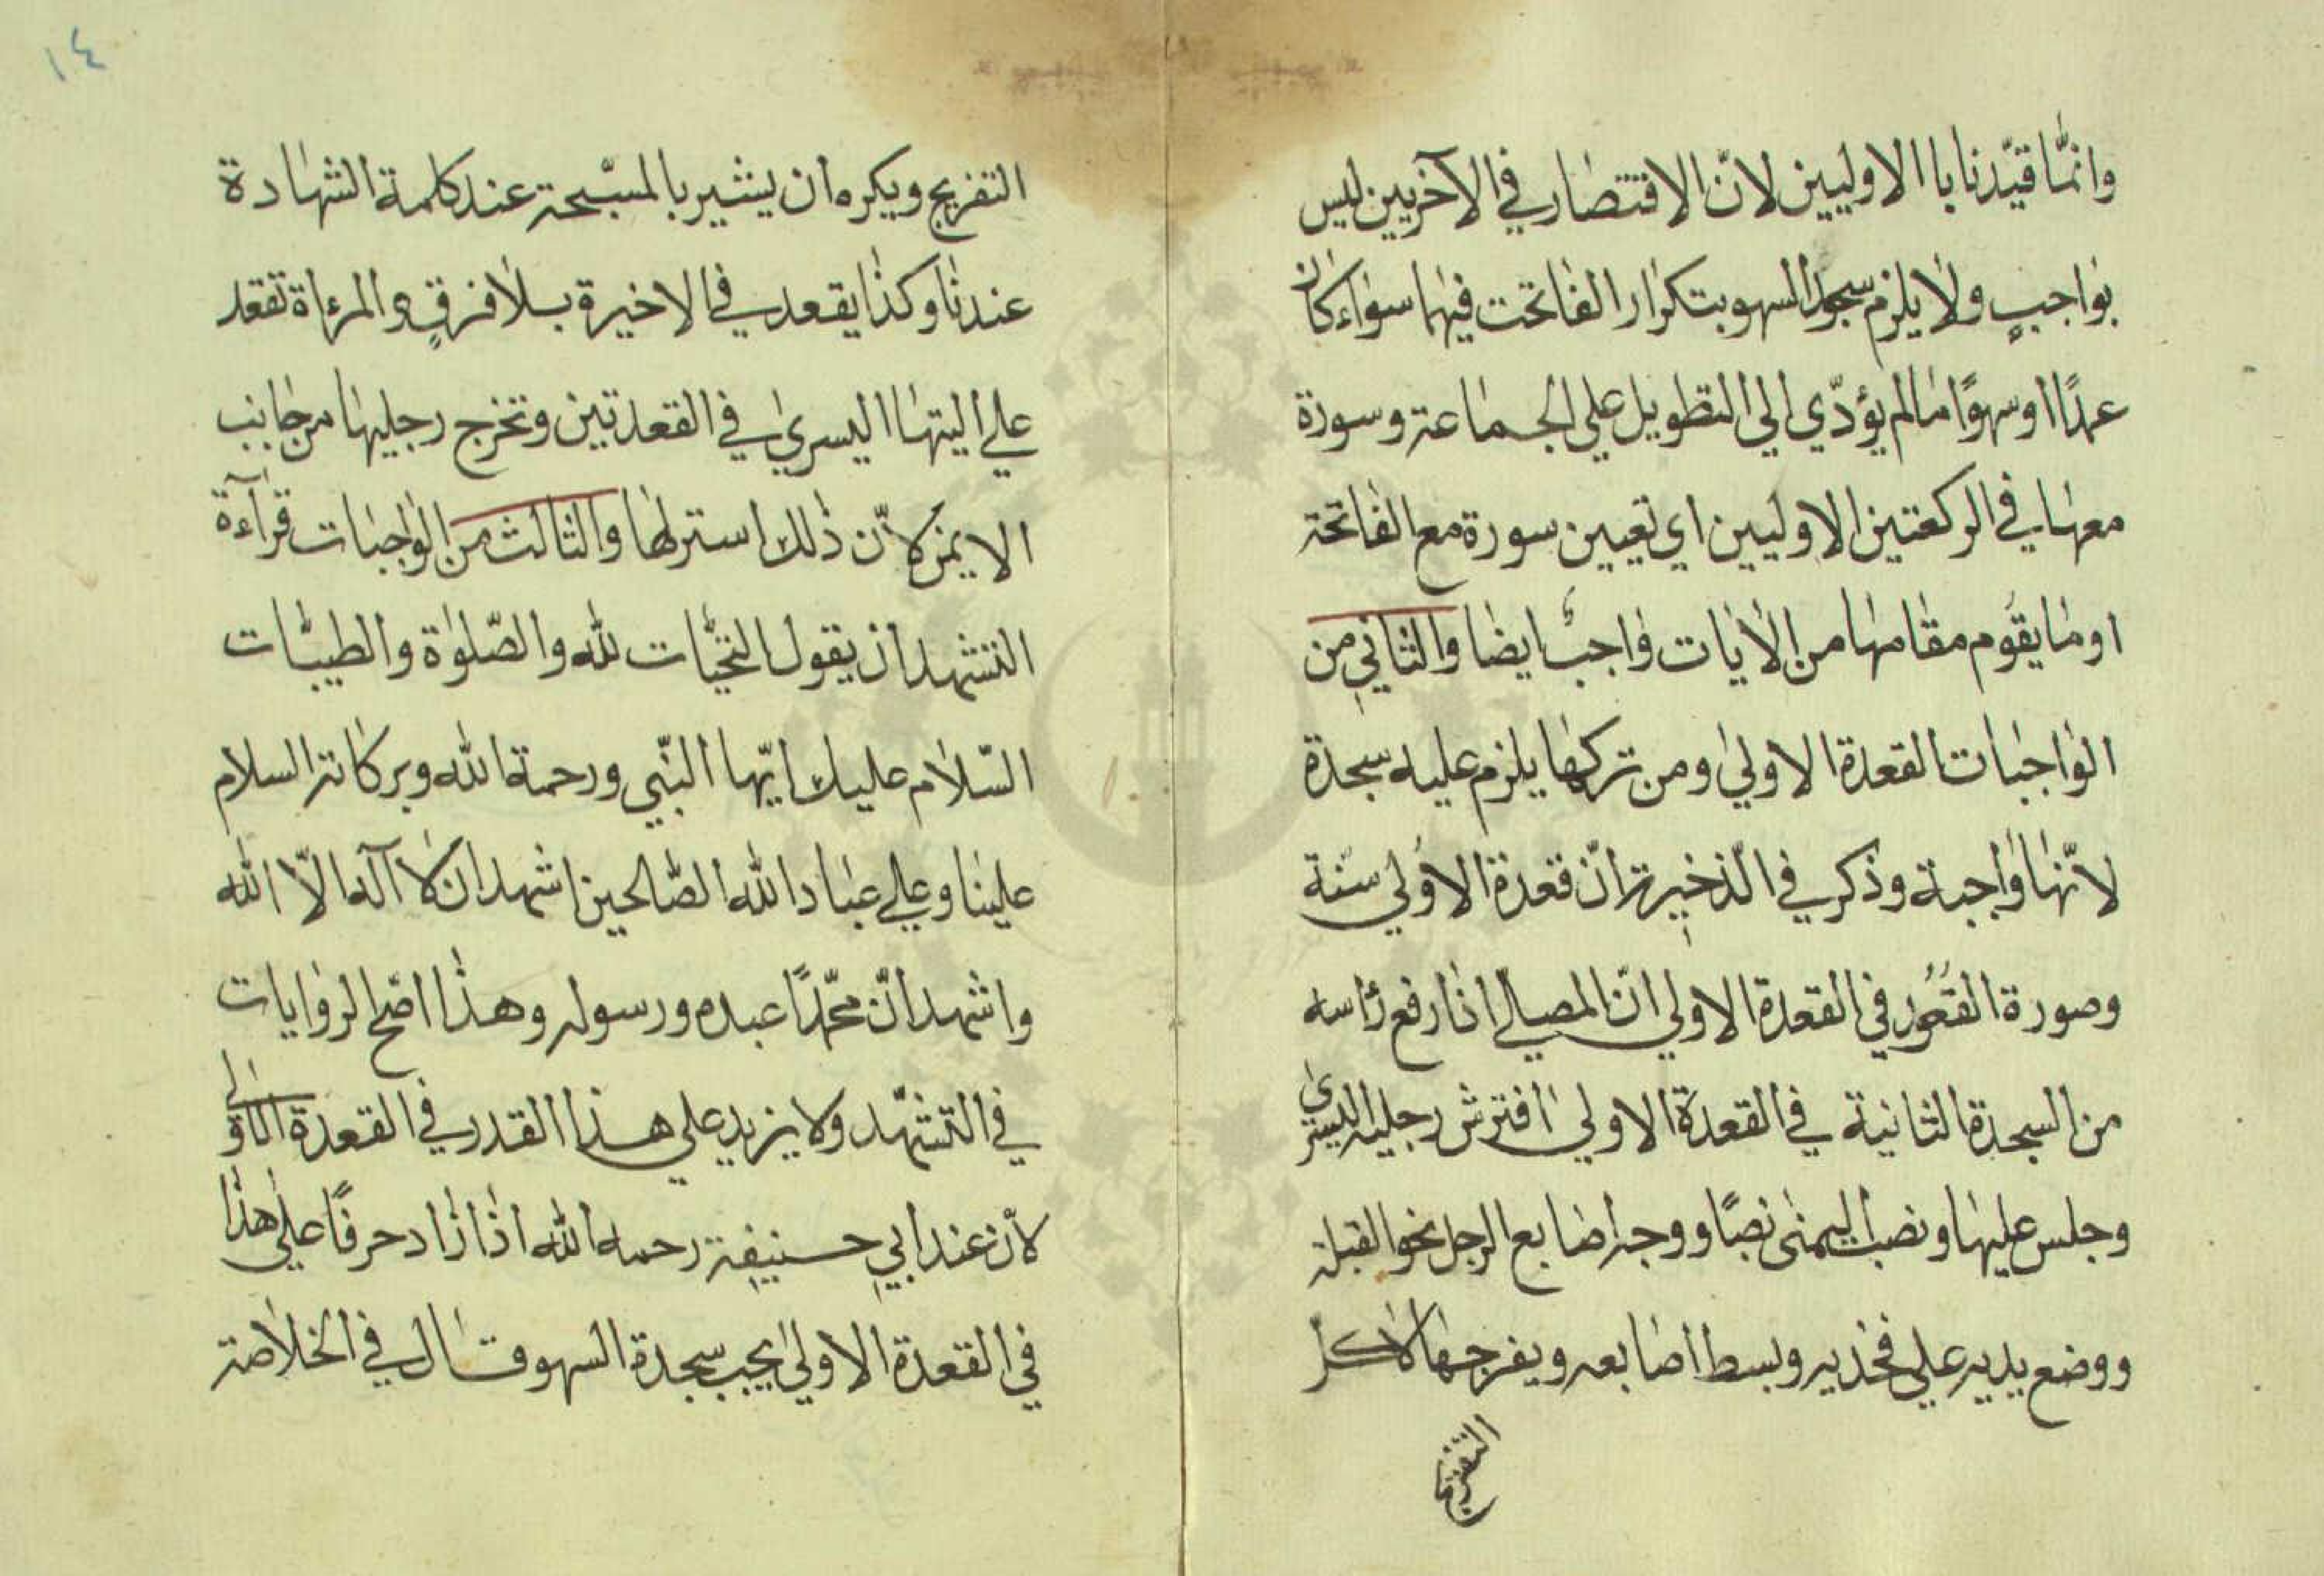 وانّما قيّدنا با الاوليين لانّ الاقتصار في الآخريين ليس
بواجبٍ ولا يلزم سجود السهو بتكرار الفاتحت فيهما سواء كان
عمدًا او سهوًا مالم يؤدّي الى التطويل على الجماعة وسورة
معها في الركعتين الاوليين اي تعيين سورة مع الفاتحة
او ما يقوم مقامها من الأيات واجبٌ ايضا والثاني من
الواجبات القعدة الاولى ومن تركها يلزم عليه سجدة
لانّها واجبة وذكر في الذخيرة انّ قعدة الاولي سنة
وصورة القعود في القعدة الاولي انّ المصلي اذا رفع رأسه
من السجدة الثانية في القعدة الاولي افترش رجليه اليسرى
وجلس عليها ونصب اليمنى نصبًا ووجه اصابع الرجل نحو القبلة
ووضع يديه علي فخذيه وبسط اصابعه ويفرجها لا كل
التفريج
١٤
التفريج ويكره ان يشير بالمسبّحة عند كلمة الشهادة
عندنا وكذا يقعد في الاخيرة بلا فرقٍ والمرءاة تقعد
علي اليتها اليسرى في القعدتين وتخرج رجليها من جانب
الايمن لانّ ذلك استر لها والثالث من الواجبات قرآءة
التشهد ان يقول التحيّات لله والصّلوة والطيبّات
السّلام عليك ايّها النّبي ورحمة الله وبركاته السلام
علينا وعلي عباد الله الصّالحين اشهد ان لا آله الاّ الله
واشهد انّ محمّدًا عبده ورسوله وهذا اصّح الروايات
في التشهّد ولا يزيد علي هذا القدر في القعدة الاولى
لانّ عند ابي حنيفة رحمه الله اذا زاد حرفًا علي هذا
في القعدة الاولي يجب سجدة السهو وقال في الخلاصة